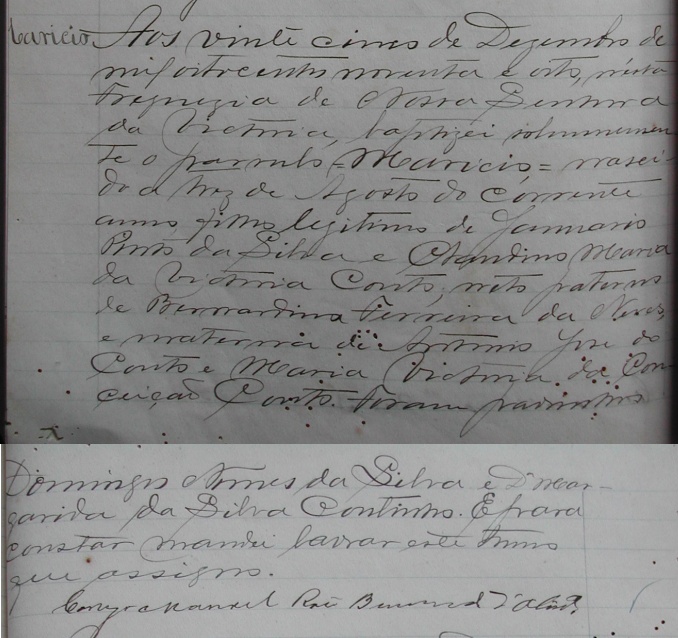 Mauricio Aos vinte cinco de Dezembro de
mil oitocentos noventa e oito, nésta
Freguezia de Nossa Senhora
da Victoria, baptizei solemnemen
te o parvulo = Mauricio = nasci-
do a trez de Agosto do Corrente
anno, filho legitimo de Januario
Pinto da Silva e Claudina Maria
da Victoria Couto, neto paterno
de Bernardina Ferreira da Neves,
e materna de Antonio Jose do
Couto e Maria Victoria da Con
ceição Couto. Foram padrinhos
Domingos Nunes da Silva e D. Mar-
garida da Silva Coutinho. E para
constar mandei lavrar este termo
que assigno.
Manoel